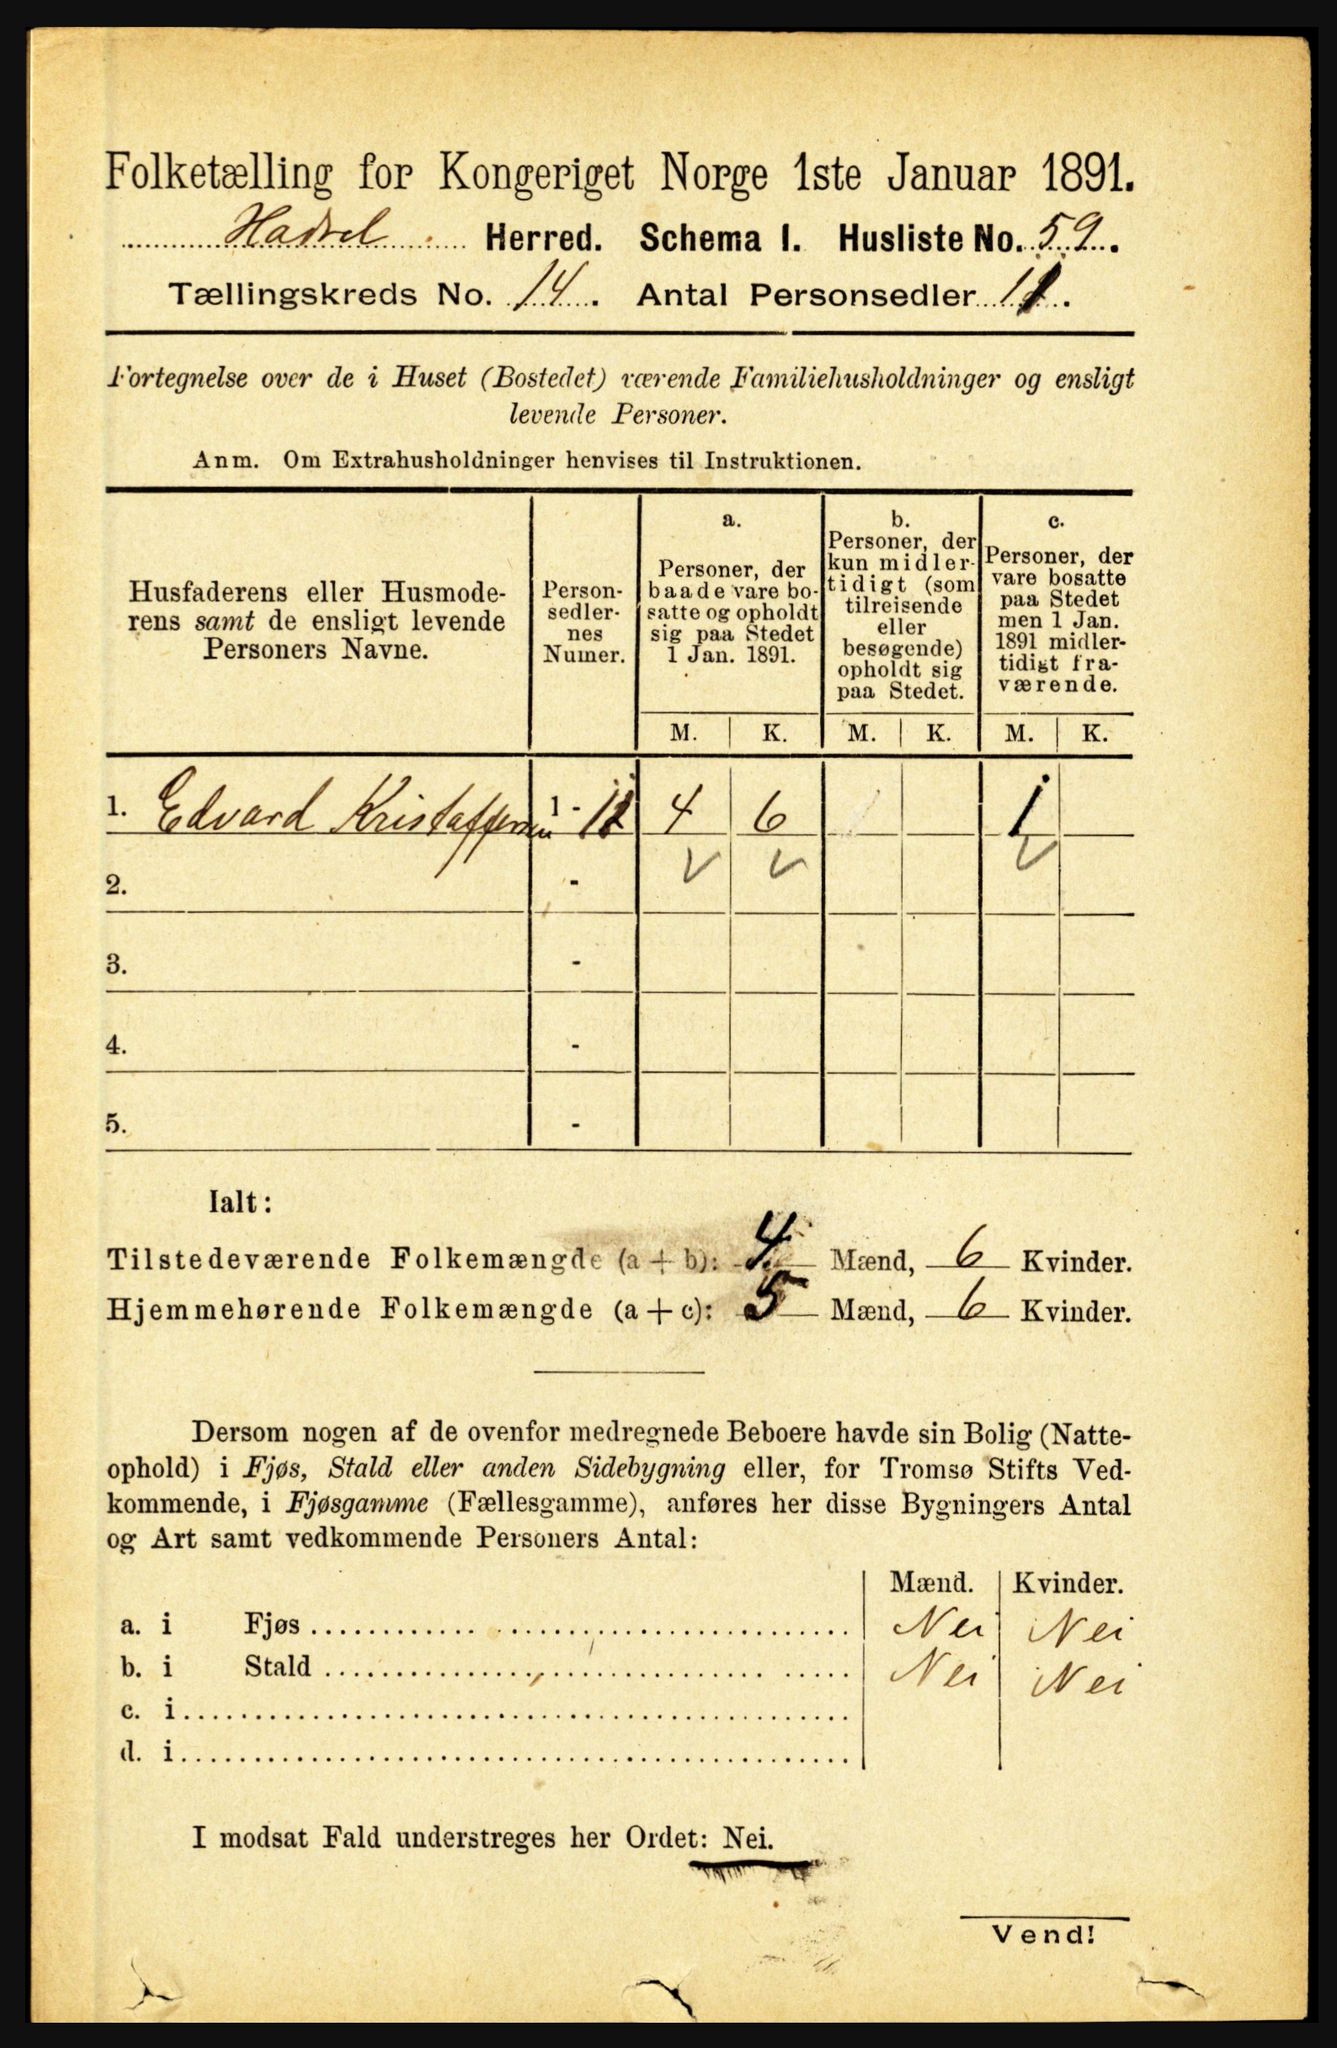 Folketælling for Kongeriget Norge 1ste Januar 1891.
Hadsel Herred. Schema I. Husliste No. 59.
Tællingskreds No. 14. Antal Personsedler 11.
Fortegnelse over de i Huset (Bostedet) værende Familiehusholdninger og ensligt
levende Personer.
Anm. Om Extrahusholdninger henvises til Instruktionen.
Husfaderens eller Husmode-
rens samt de ensligt levende
Personers Navne.
Person-
sedler-
nes
Numer.
a.
Personer, der
baade vare bo-
satte og opholdt
sig paa Stedet
1 Jan. 1891.
b.
Personer, der
kun midler-
tidigt (som
tilreisende
eller
besøgende)
opholdt sig
paa Stedet.
c.
Personer, der
vare bosatte
paa Stedet
men 1 Jan.
1891 midler-
tidigt fra-
værende.
M. K. M. K. M. K.
1. Edvard Kristoffersen 1 - 11 4 6 1
2. -
3. -
4. -
5. -
Ialt:
Tilstedeværende Folkemængde (a + b): 4 Mænd, 6 Kvinder.
Hjemmehørende Folkemængde (a + c): 5 Mænd, 6 Kvinder.
Dersom nogen af de ovenfor medregnede Beboere havde sin Bolig (Natte-
ophold) i Fjøs, Stald eller anden Sidebygning eller, for Tromsø Stifts Ved-
kommende, i Fjøsgamme (Fællesgamme), anføres her disse Bygningers Antal
og Art samt vedkommende Personers Antal:
Mænd. Kvinder.
a. i Fjøs Nei Nei
b. i Stald Nei Nei
c. i
d. i
I modsat Fald understreges her Ordet: Nei.
Vend!